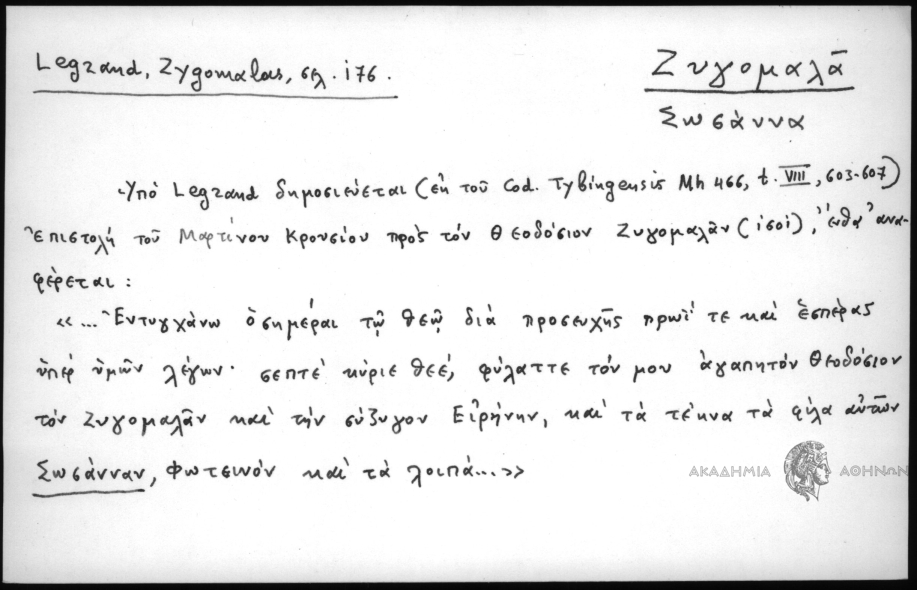 Legrand, Zygomalas, σελ. 176.
Ζυγομαλᾶ
Σωσάννα
Ὑπὸ Legrand δημοσιεύεται (ἐκ τοῦ Cod. Tybingensis Mh 466, t. VIII, 603-607)
ἐπιστολή τοῦ Μαρτίνου Κρουσίου πρὸς τὸν Θεοδόσιον Ζυγομαλᾶν (1501), ἔνθα ἀνα-
φέρεται:
«... Ἐντυγχάνω ὁσημέραι τῷ θεῷ διὰ προσευχῆς πρωΐ τε καὶ ἑσπέρας
ὑπὲρ ὑμῶν λέγων· σεπτὲ κύριε θεέ, φύλαττε τὸν μου ἀγαπητὸν Θεοδόσιον
τὸν Ζυγομαλᾶν καὶ τὴν σύζυγον Εἰρήνην, καὶ τὰ τέκνα τὰ φίλα αὐτῶν
Σωσάνναν, Φωτεινὸν καὶ τὰ λοιπά...»
ΑΚΑΔΗΜΙΑ ΑΘΗΝΩΝ